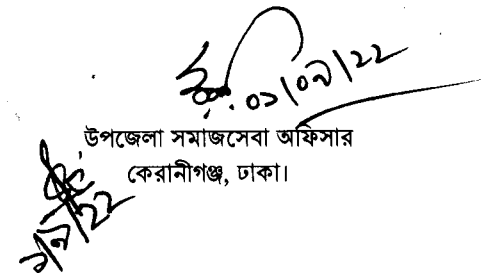 ০১/০৯/২২
উপজেলা সমাজসেবা অফিসার
কেরানীগঞ্জ, ঢাকা।
১/৯/২২